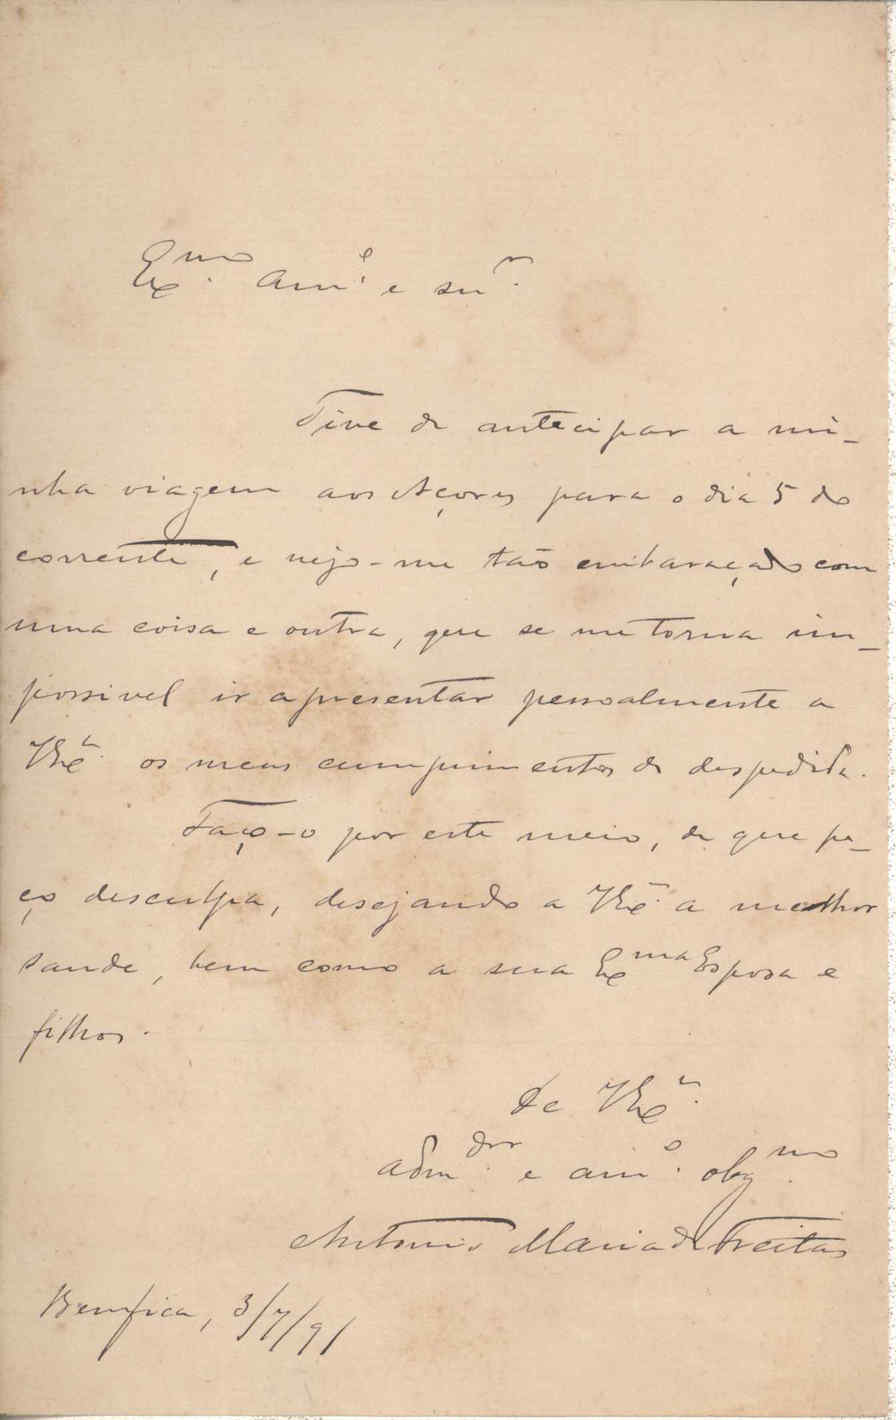 Ex.mo am.º e snr.
Tive de antecipar a mi-
nha viagem aos Açores para o dia 5 do
corrente, e vejo-me tão embaraçado com
uma coisa e outra, que se me torna im-
possivel ir apresentar pessoalmente a
V. Ex.ª os meus cumprimentos de despedida.
Faço-o por este meio, de que pe-
ço desculpa, desejando a V. Ex.ª a melhor
saude, bem como a sua Ex.ma Esposa e
filhos.
De V. Ex.ª
adm.dor e am.º obg.mo
Antonio Maria de Freitas
Bemfica, 3/7/91